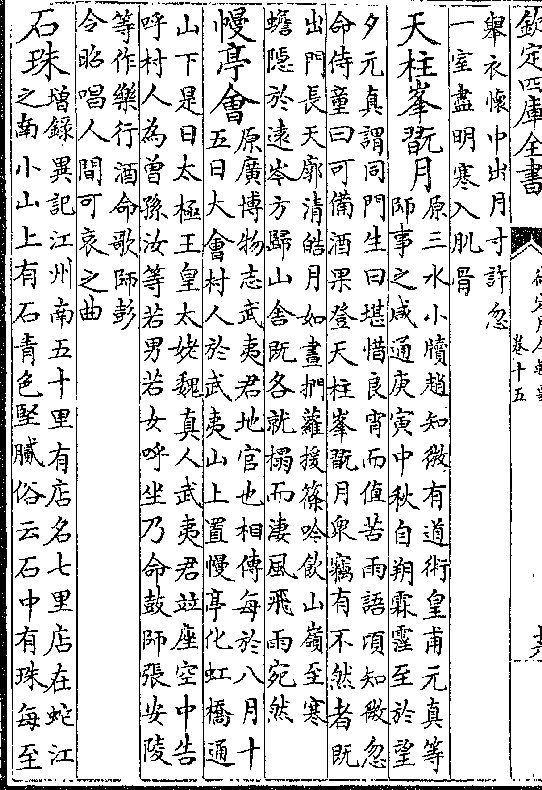 欽定四庫全書
卷十五
舉衣懷中出月寸許忽
一室盡明寒入肌骨
天柱峯翫月
原三水小牘趙知微有道術皇甫元真等
師事之咸通庚寅中秋自朔霖霪至於望
夕元真謂同門生曰堪惜良宵而值苦雨語頃知微忽
命侍童曰可備酒果登天柱峯翫月衆竊有不然者既
出門長天廓清皓月如晝捫蘿援篠吟飲山嶺至寒
蟾隱於遠岑方歸山舍既各就榻而淒風飛雨宛然
慢亭會
原廣博物志武夷君地官也相傳每於八月十
五日大會村人於武夷山上置慢亭化虹橋通
山下是日太極王皇太姥魏真人武夷君竝座空中告
呼村人為曾孫汝等若男若女呼坐乃命鼓師張安陵
等作樂行酒命歌師彭
令昭唱人間可哀之曲
石珠
增錄異記江州南五十里有店名七里店在蛇江
之南小山上有石青色堅膩俗云石中有珠每至